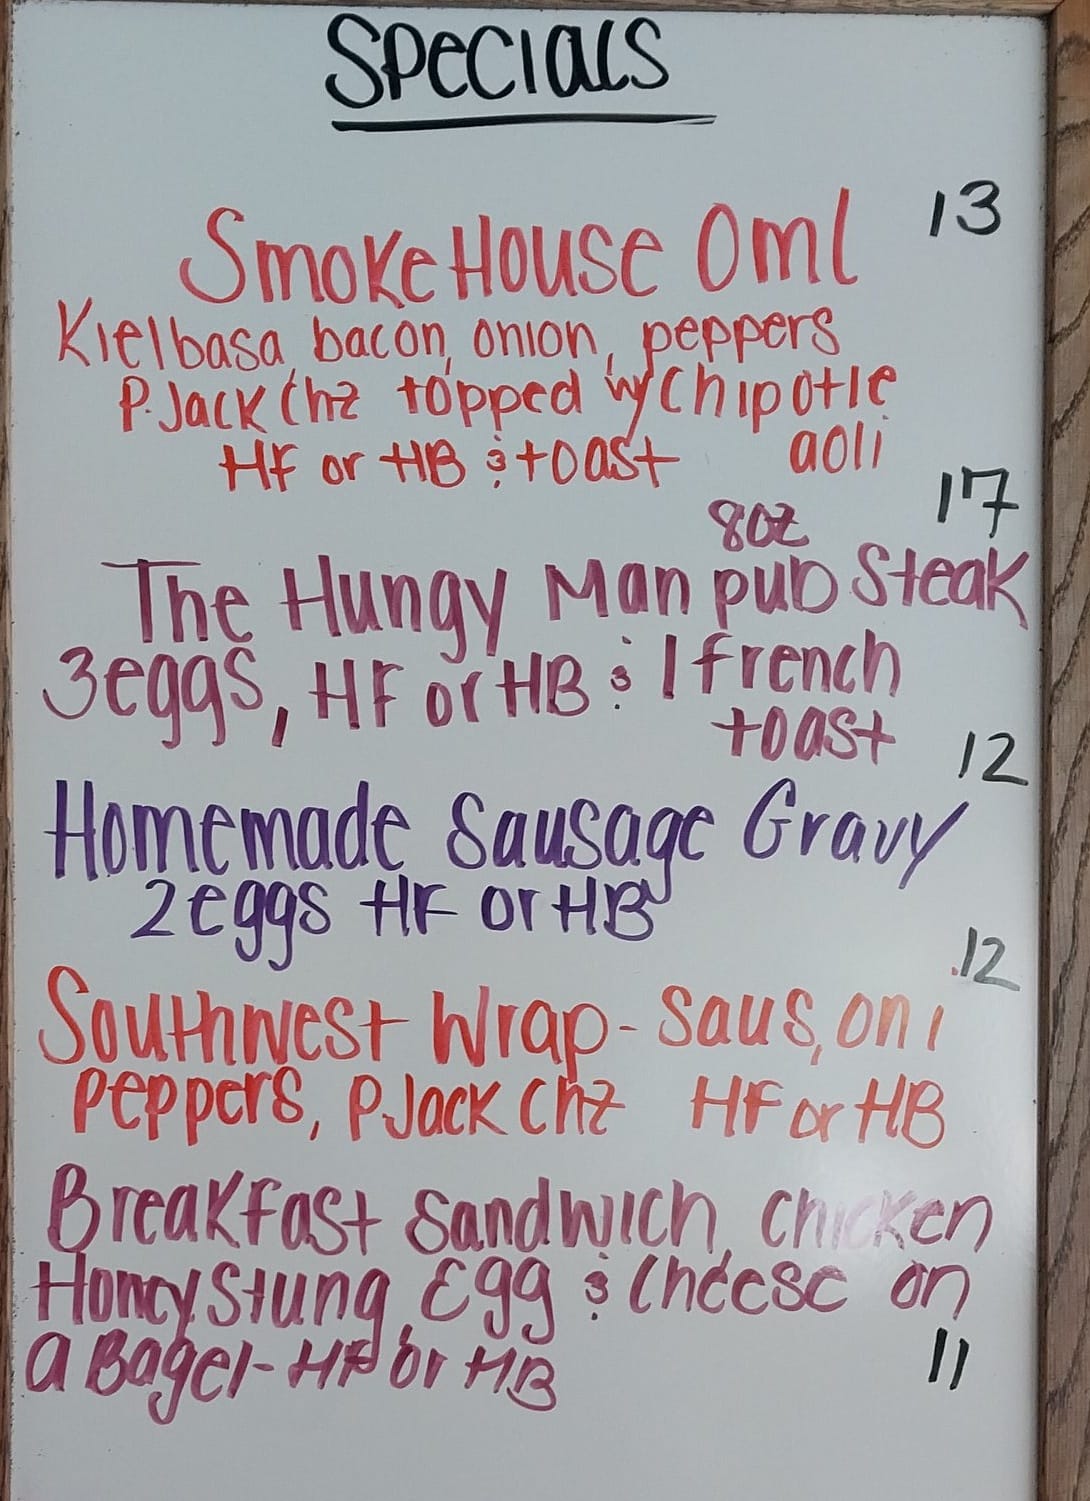 Specials
SmokeHouse Oml 13
Kielbasa, bacon, onion, peppers
P.Jack Chz topped w/ Chipotle
HF or HB & toast aoli
17
8oz
The Hungy Man pub Steak
3eggs, HF or HB & 1 french
toast
12
Homemade Sausage Gravy
2eggs HF or HB
.12
Southwest Wrap - Saus, oni
peppers, PJack Chz HF or HB
Breakfast Sandwich, chicken
Honey Stung, Egg & Cheese on
a Bagel - HF or HB 11